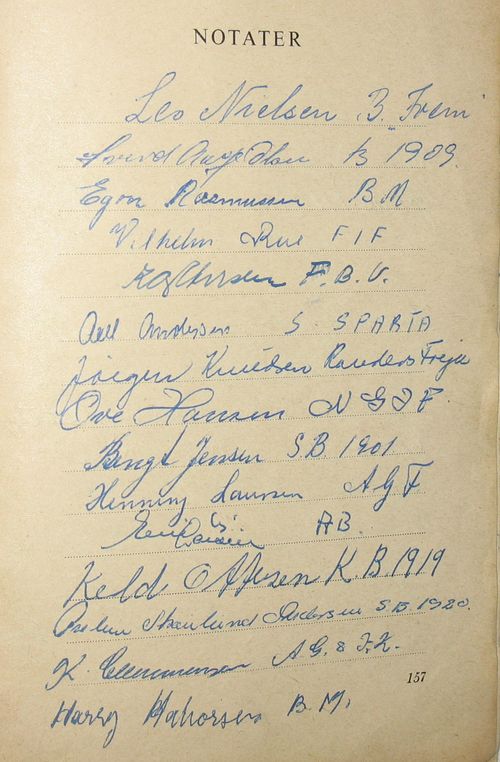 NOTATER
Leo Nielsen B. Frem
Svend Aage Olsen B 1909.
Egon Rasmussen B M
Vilhelm Rue F I F
F. B. V.
Andersen S. SPARTA
Jörgen Knudsen Randers Freja
Ove Hansen N G I F.
Bengt Jensen S B 1901
Henning Laursen A G F
AB.
Keld Ottosen K. B. 1919
Andersen S.B. 1920.
K. Clemmensen A. G. & I. K.
157
Harry B. M.